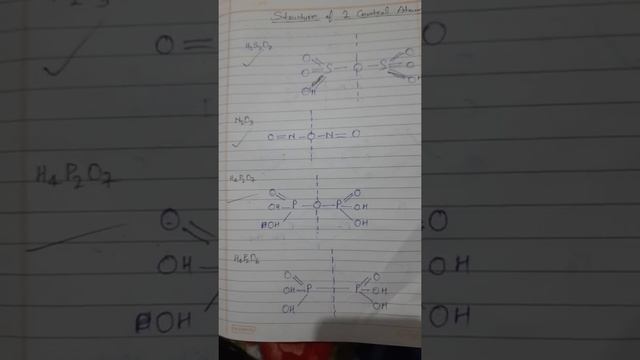 Structure of 2 Central Atom
H2S2O7
O O
O S O S O
OH OH
N2O3
O=N-O-N=O
H4P2O7
O O
OH P O P OH
HOH OH
H4P2O6
O O
OH P P OH
OH OH
O=
H4P2O7
O
OH
HOH
O
OH
OH